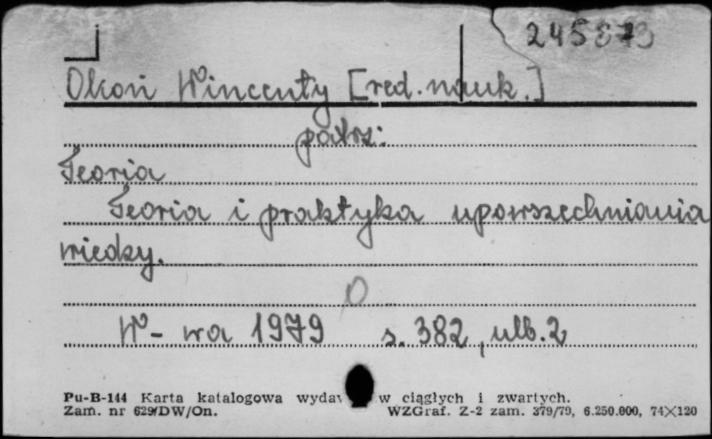 Okoń Wincenty [red. nauk.]
patrz:
Teoria
Teoria i praktyka upowszechniania
wiedzy.
W-wa 1979 s. 382, ulb. 2
Pu-B-144 Karta katalogowa wydaw w ciągłych i zwartych.
Zam. nr 629/DW/On. WZGraf. Z-2 zam. 379/79, 6.250.000, 74×120